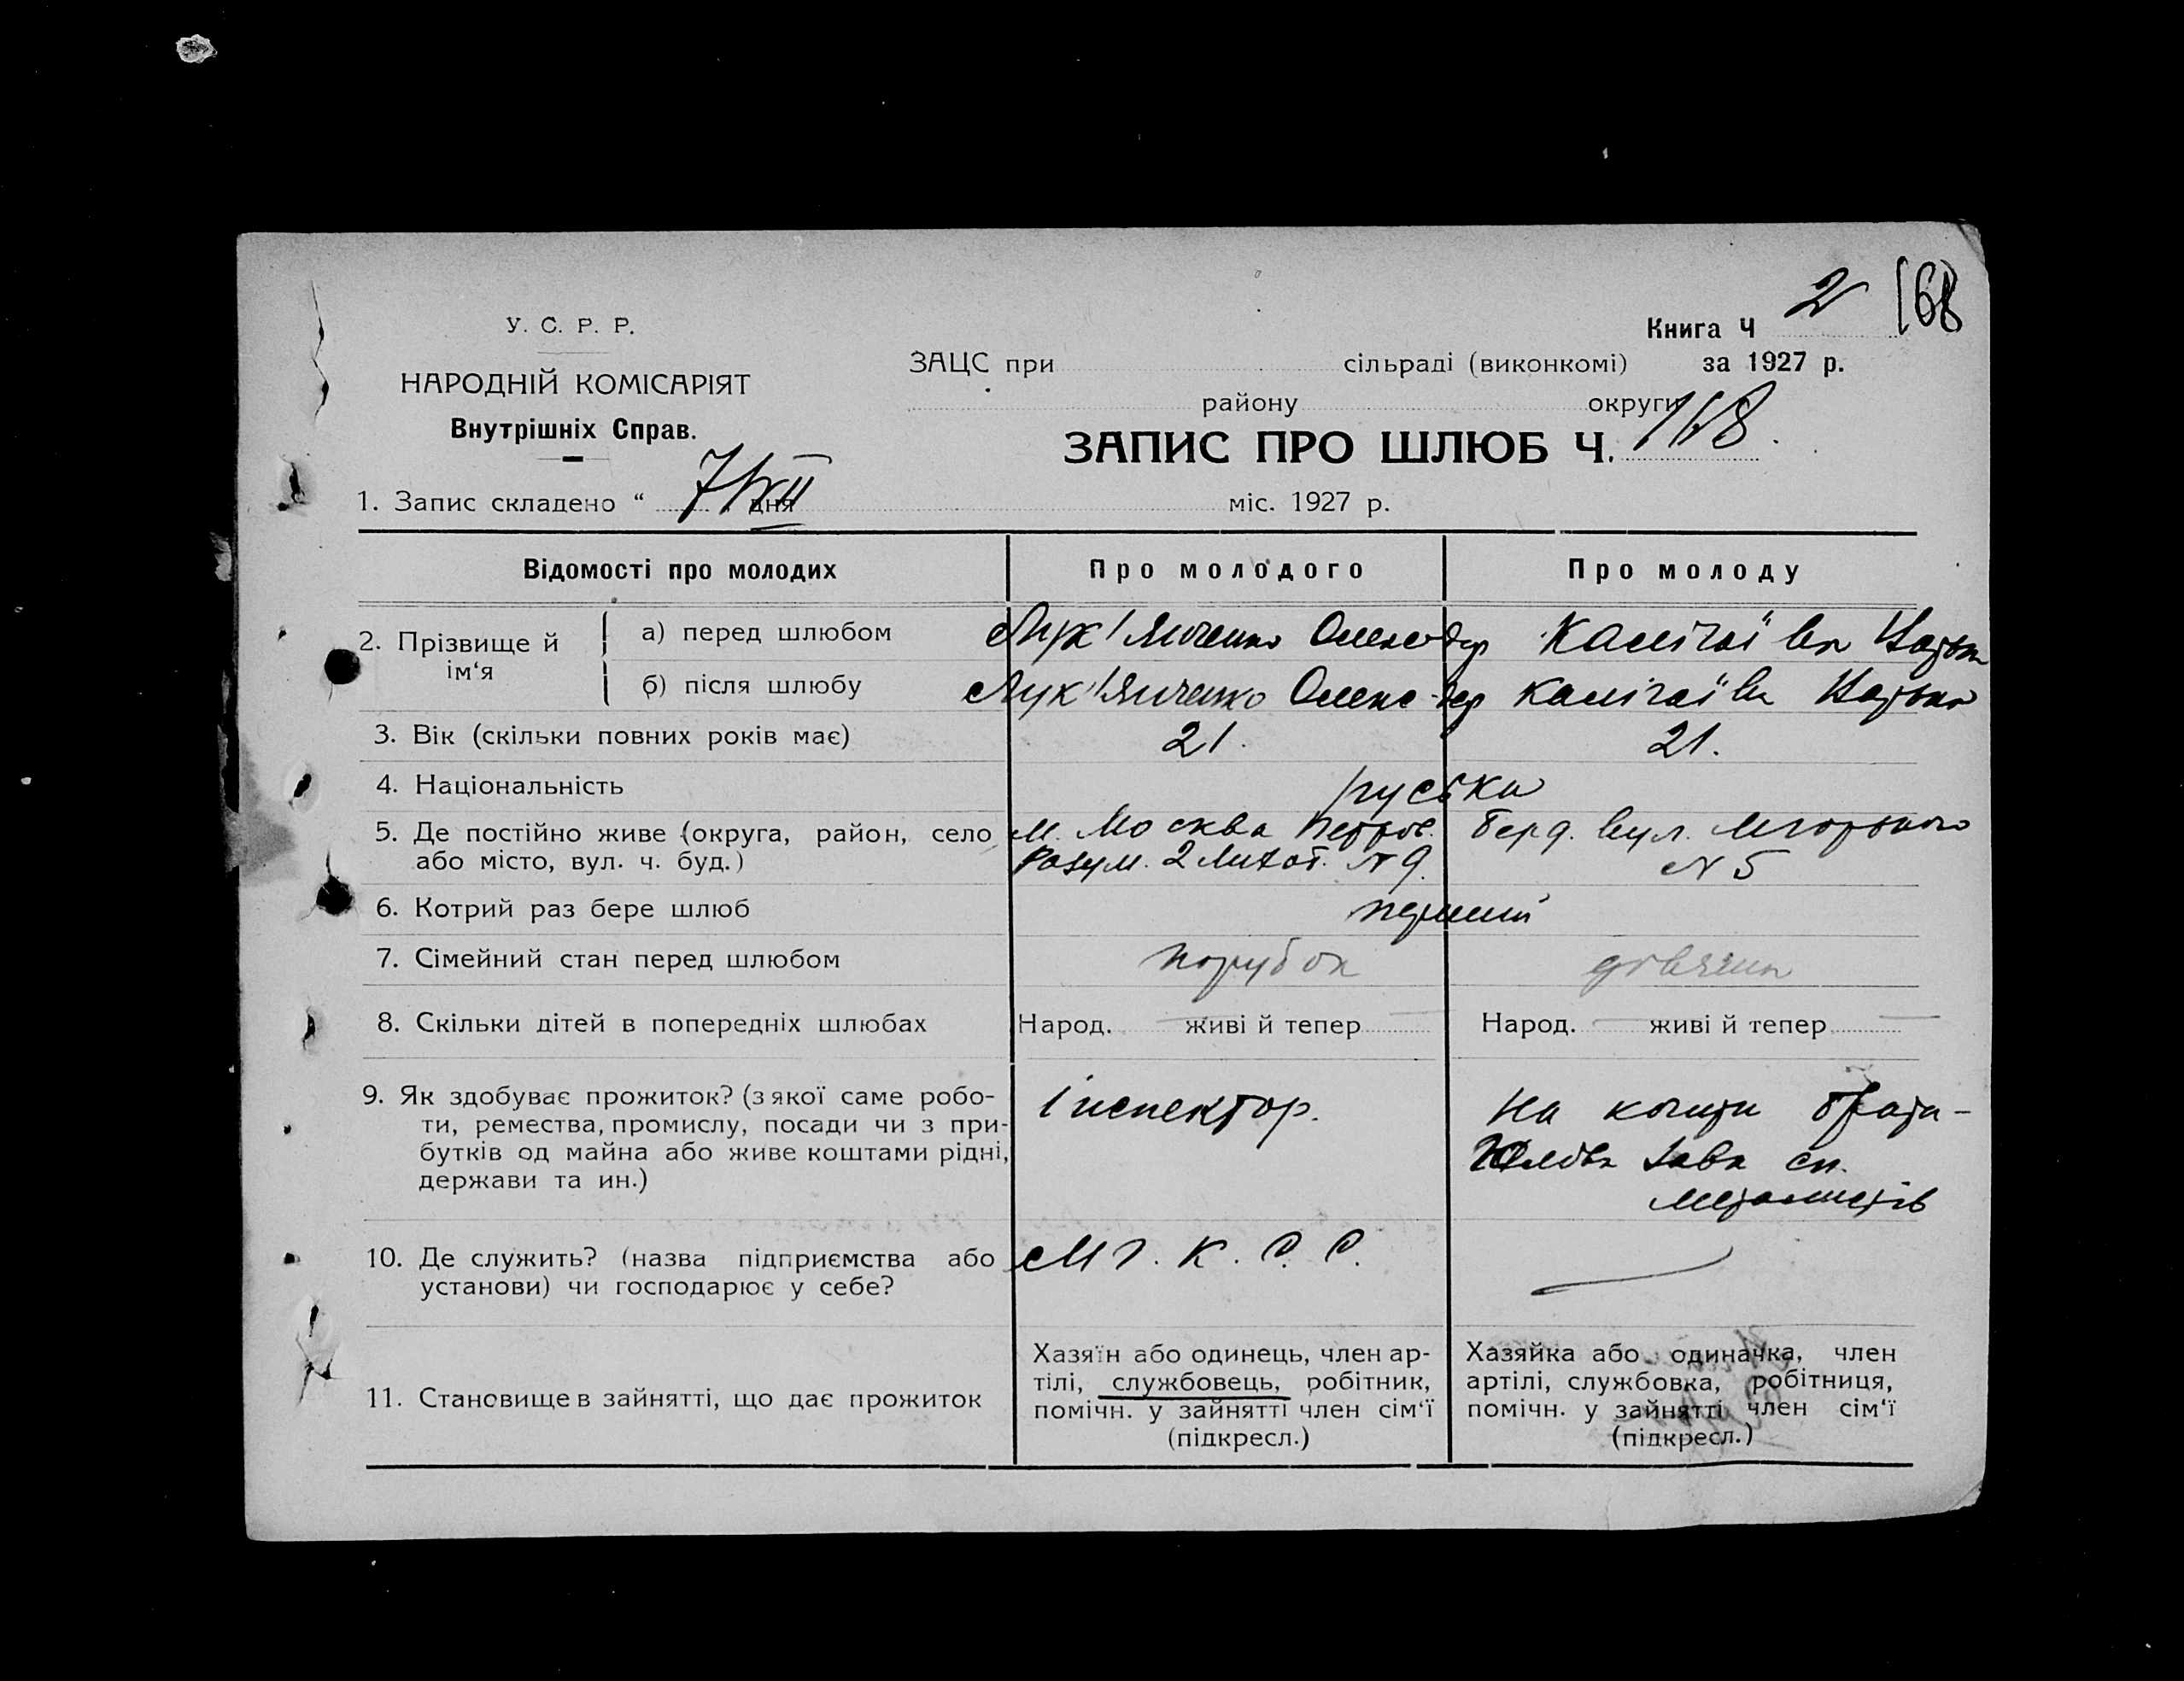 2
168
У. С. Р. Р.
Книга Ч
ЗАЦС при сільраді (виконкомі) за 1927 р.
НАРОДНІЙ КОМІСАРІЯТ
району округи
Внутрішніх Справ.
ЗАПИС ПРО ШЛЮБ Ч. 168.
1. Запис складено “ 7/XII дня міс. 1927 р.
Відомості про молодих Про молодого Про молоду
2. Прізвище й ім‘я
а) перед шлюбом Лук'янченко Олександр
б) після шлюбу Лук'янченко Олександр
3. Вік (скільки повних років має) 21. 21.
4. Національність руська
5. Де постійно живе (округа, район, село м. Москва Петров. Берд. вул.
або місто, вул. ч. буд.) Разум. 2 № 9. № 5
6. Котрий раз бере шлюб перший
7. Сімейний стан перед шлюбом парубок дівчина
8. Скільки дітей в попередніх шлюбах Народ. — живі й тепер — Народ. — живі й тепер —
9. Як здобуває прожиток? (з якої саме робо-
ти, ремества, промислу, посади чи з при-
бутків од майна або живе коштами рідні,
держави та ин.)
інспектор.
На кошти брата-
зава сп.
металистів
10. Де служить? (назва підприємства або
установи) чи господарює у себе?
М Г. К. С. С.
—
11. Становище в зайнятті, що дає прожиток
Хазяїн або одинець, член ар-
тілі, службовець, робітник,
помічн. у зайнятті член сім‘ї
(підкресл.)
Хазяйка або одиначка, член
артілі, службовка, робітниця,
помічн. у зайнятті член сім‘ї
(підкресл.)